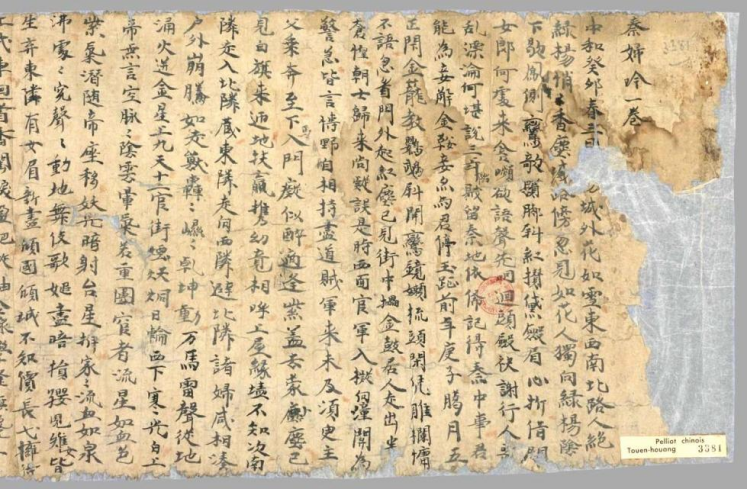 秦婦吟一卷
中和癸卯春三月城外花如雪東西南北路人絕
綠楊悄〻香塵滅路傍忽見如花人獨向綠楊陰
下歇鳳側鸞欹鬢腳斜紅攢黛斂眉心折借問
女郎何處來含嚬欲語聲先咽迴頭斂袂謝行人喪
乱漂淪何堪說三年陷賊留秦地依俙記得秦中事君
能為妾解金鞍妾亦為君停玉趾前年庚子臘月五
正閇金籠教鸚鵡斜開鸞鏡嬾梳頭閑凭雕欄慵
不語忽看門外起紅塵已見街中擂金鼓居人走出半
蒼惶朝士歸來尚疑誤是時西面官軍入擬向潼關為
警急皆言博野自相持盡道賊軍來未及須臾主
父乘奔至下馬入門癡似醉適逢紫蓋去蒙塵已
見白旗來迊地扶羸攜幼竟相呼上屋緣墻不知次南
隣走入北隣藏東隣走向西隣避北隣諸婦咸相湊
戶外崩騰如走獸轟〻〻乾坤動万馬雷聲從地
涌火迸金星上九天十二官街煙烔日輪西下寒光白上
帝無言空脉〻陰雲暈氣若重圍宦者流星如血色
紫氣潛隨帝座移妖光暗射台星拆家〻流血如泉
沸處〻冤聲〻動地舞伎歌姬盡暗損嬰兒稚女皆
生弃東隣有女眉新畫傾國傾城不知價長戈擁
車迴首香閨淚盈把
3381
Pelliot chinois
Touen-houang 3381